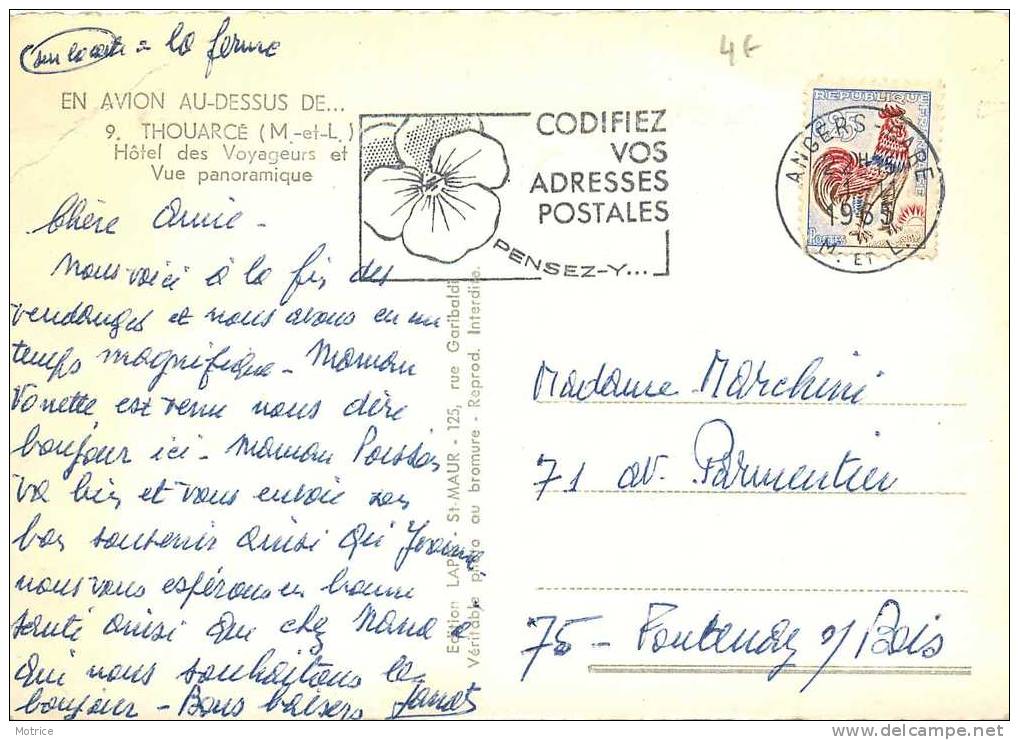 = la ferme
4F
EN AVION AU-DESSUS DE...
9. THOUARCÉ (M.-et-L.)
Hôtel des Voyageurs et
Vue panoramique
CODIFIEZ
VOS
ADRESSES
POSTALES
PENSEZ-Y...
REPUBLIQUE
POSTES
ANGERS-GARE
1965
M. ET L.
Chère Amie -
Nous voici à la fin des
vendanges et nous avons eu un
temps magnifique - Maman
Vonette est venu nous dire
bonjour ici - Maman Poisson
va bien et vous envoie son
bon souvenir ainsi qui
nous vous espérons en bonne
santé ainsi que chez
qui nous souhaitons le
bonjour - Bons baisers
Edition LAPIE St-MAUR - 125, rue Garibaldi
Véritable photo au bromure - Reprod. Interdite.
Madame Marchini
71 av. Parmentier
75 - Fontenay s/ Bois
Motrice
www.delcampe.net